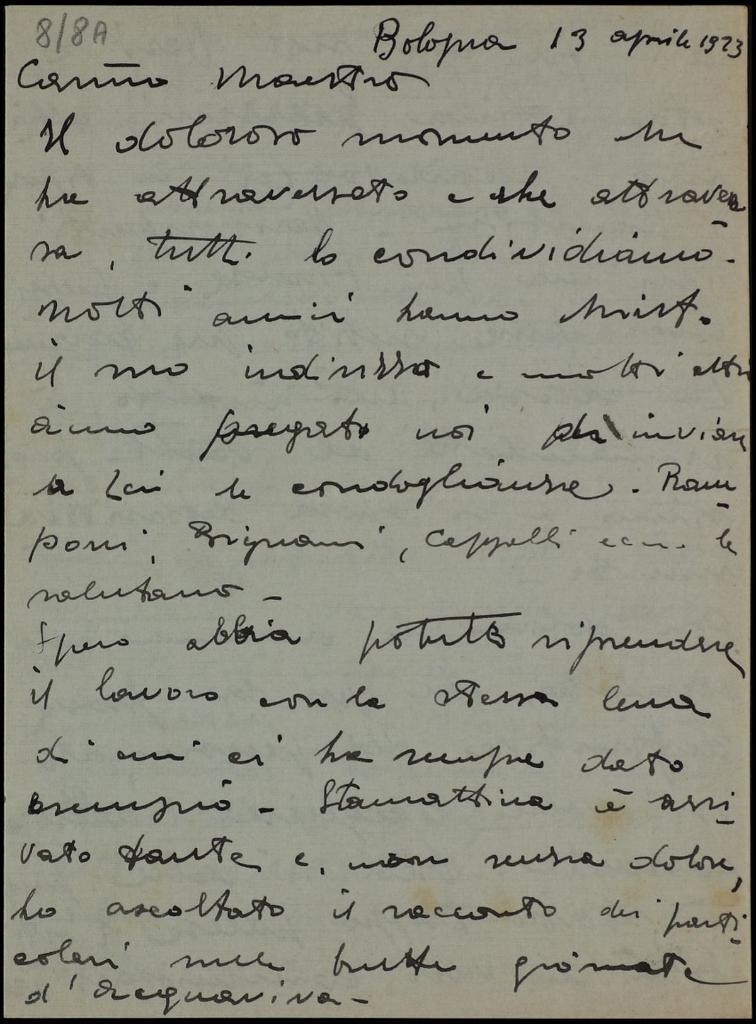 8/8A
Bologna 13 aprile 1923
Carissimo Maestro
Il doloroso momento che
ha attraversato e che attraver
sa, tutti lo condividiamo.
Molti amici hanno chiesto
il suo indirizzo e molti altri
ànno pregato noi di inviare
a Lei le condoglianze. Ram
poni, Brignami, Cappelli ecc. la
salutano -
Spero abbia potuto riprendere
il lavoro con la stessa lena
di cui ci ha sempre dato
esempio - Stamattina è arri
vato Dante e, non senza dolore,
ho ascoltato il racconto dei parti
colari nelle brutte giornate
d'Acquaviva -